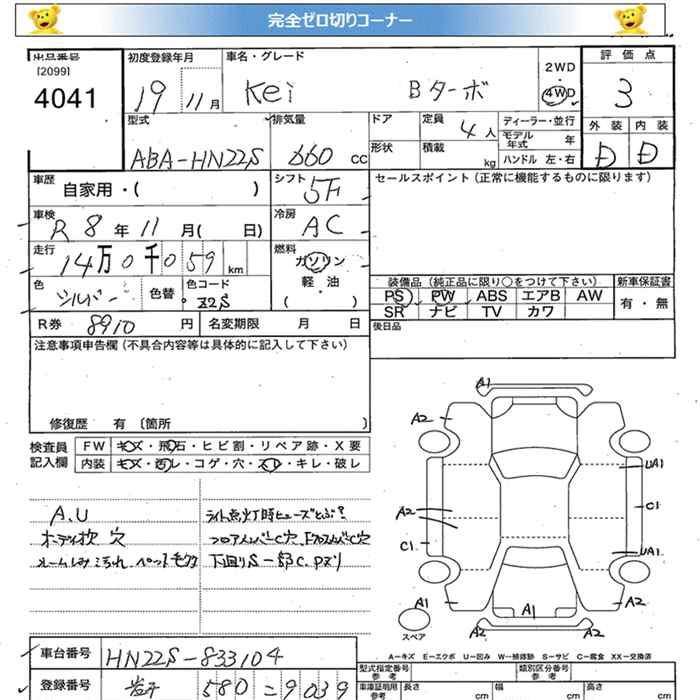 完全ゼロ切りコーナー
出品番号 初度登録年月 車名・グレード 2WD 評価点
[2099]
4041 19 11月 Kei Bターボ 4WD 3
型式 排気量 ドア 定員 4人 ディーラー・並行 外装 内装
モデル年式 年
ABA-HN22S 660cc 形状 積載 kg ハンドル 左・右 D D
車歴 自家用・( ) シフト 5F セールスポイント(正常に機能するものに限ります)
車検 R8年11月( 日) 冷房 AC
走行 14万0千059km 燃料 ガソリン
軽・油
( )
色 シルバー 色替 色コード Z2S
装備品(純正品に限り○をつけて下さい) 新車保証書
PS PW ABS エアB AW 有・無
SR ナビ TV カワ
R券 8910円 名変期限 月 日 後日品
注意事項申告欄(不具合内容等は具体的に記入して下さい)
修復歴 有 〔箇所 〕
検査員記入欄 FW キズ・飛石・ヒビ割・リペア跡・X要
内装 キズ・汚レ・コゲ・穴・スレ・キレ・破レ
A.U ライト点灯時ヒューズとぶ?
ボディ枕穴
ルームしみ汚れ、ペット毛多 下回りS一部C、Pズリ
A1
A2
UA1
A2 C1
C1
UA1
A1 A1 A2
スペア A2 A2
A-キズ E-エクボ U-凹み W-補修跡 S-サビ C-腐食 XX-交換済
車台番号 HN22S-833104
型式指定番号 参考 類別区分番号 参考
登録番号 岩手 580 = 9039
車庫証明用 参考 長さ cm 幅 cm 高さ cm